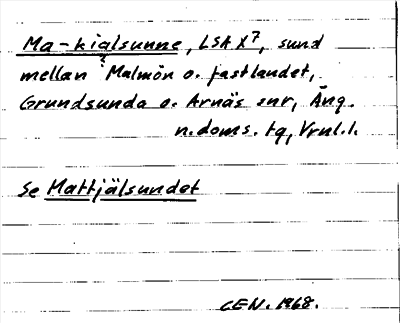 Ma-kialsunne, LSA X7, sund
mellan Malmön o. fastlandet,
Grundsunda o. Arnäs snr, Ång.
n. doms. tg, Vrnl. l.
Se Mattjälsundet
CEN. 1968.